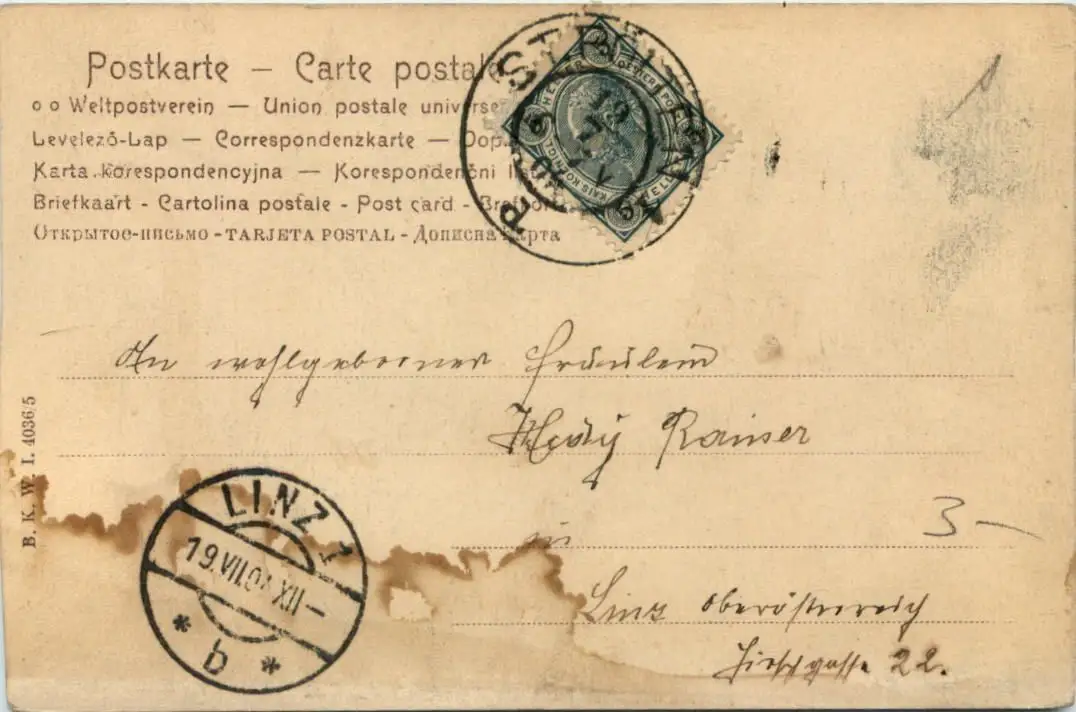 Postkarte — Carte postale
o o Weltpostverein — Union postale universe
Levelező-Lap — Correspondenzkarte — Dop
Karta korespondencyjna — Korespondenční lis
Briefkaart - Cartolina postale - Post card - Brefkort
Открытое-письмо - TARJETA POSTAL - Дописна карта
HELLER
5
An wohlgeborner Fräulein
Hedy Rainer
in
Linz Oberösterreich
Hirschgasse 22.
3 —
B. K. W. I. 4036/5
LINZ 1
19.VII.0 XII—
* b *